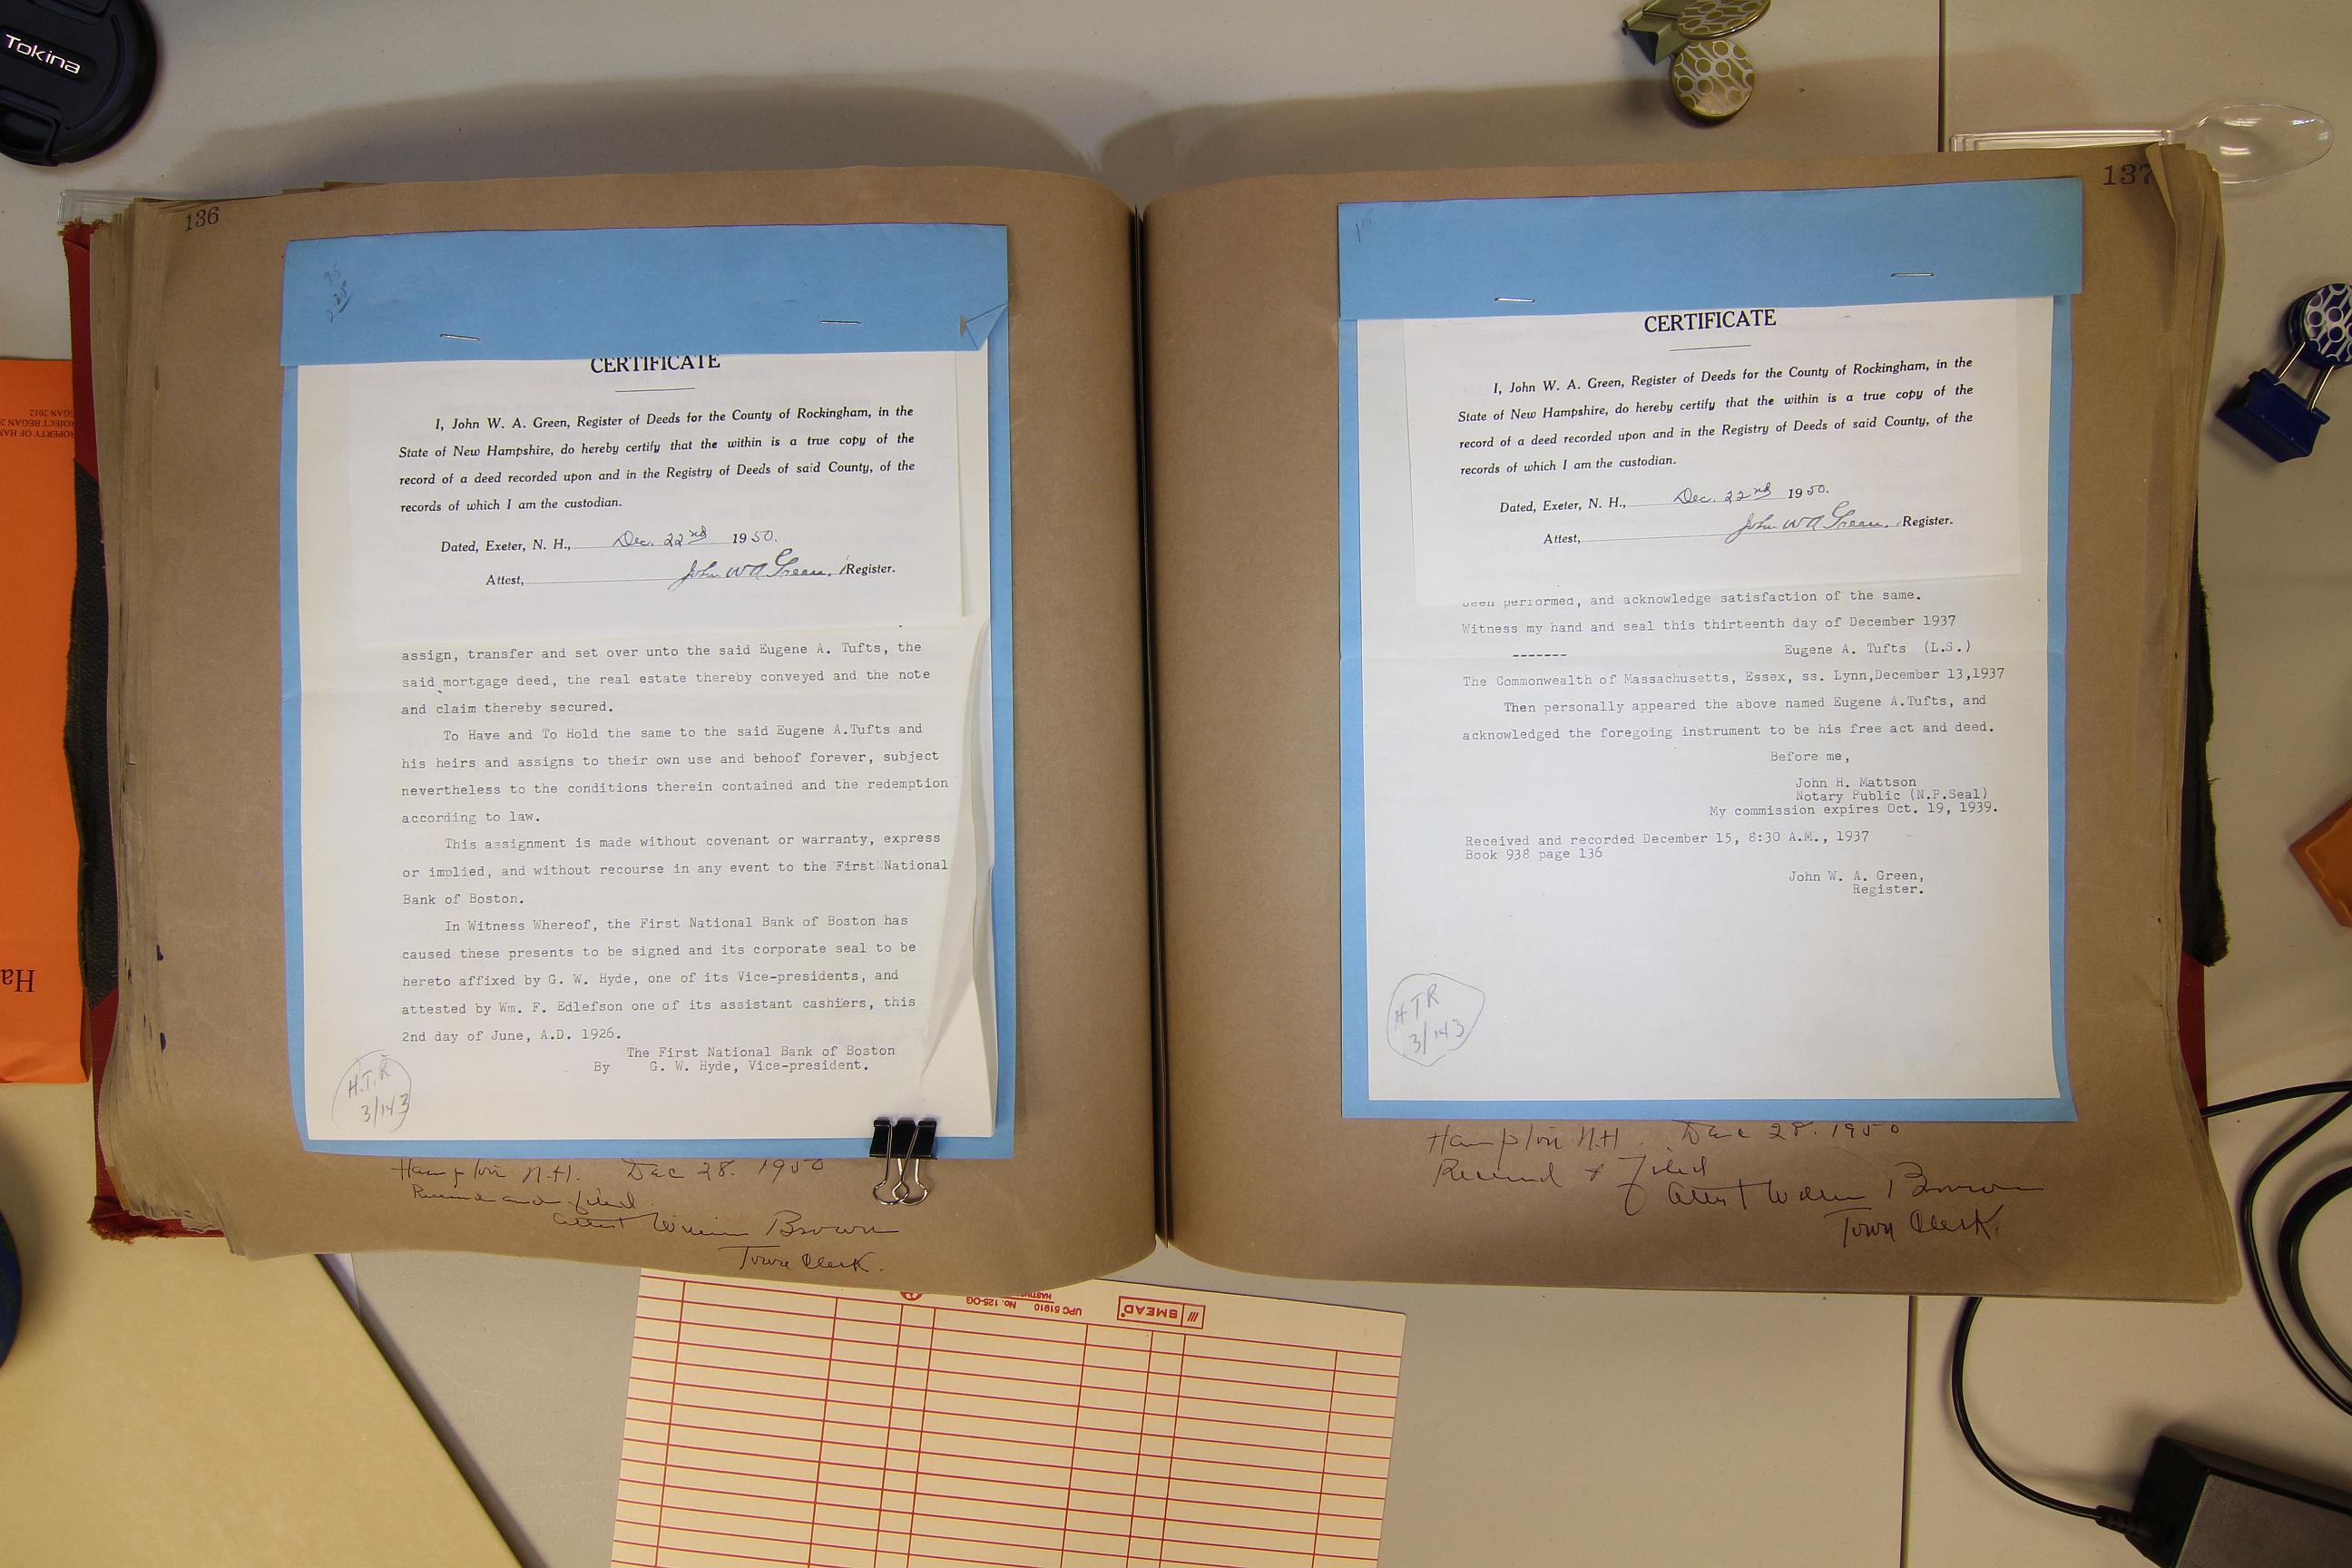 Tokina
136
CERTIFICATE
I, John W. A. Green, Register of Deeds for the County of Rockingham, in the
State of New Hampshire, do hereby certify that the within is a true copy of the
record of a deed recorded upon and in the Registry of Deeds of said County, of the
records of which I am the custodian.
Dated, Exeter, N. H., Dec. 22nd 1950.
Attest, John W A Green, Register.
assign, transfer and set over unto the said Eugene A. Tufts, the
said mortgage deed, the real estate thereby conveyed and the note
and claim thereby secured.
To Have and To Hold the same to the said Eugene A.Tufts and
his heirs and assigns to their own use and behoof forever, subject
nevertheless to the conditions therein contained and the redemption
according to law.
This assignment is made without covenant or warranty, express
or implied, and without recourse in any event to the First National
Bank of Boston.
In Witness Whereof, the First National Bank of Boston has
caused these presents to be signed and its corporate seal to be
hereto affixed by G. W. Hyde, one of its Vice-presidents, and
attested by Wm. F. Edlefson one of its assistant cashiers, this
2nd day of June, A.D. 1926.
The First National Bank of Boston
By G. W. Hyde, Vice-president.
H.T.R
3/143
Hampton N.H. Dec 28. 1950
Received and filed
attest William Brown
Town Clerk.
137
CERTIFICATE
I, John W. A. Green, Register of Deeds for the County of Rockingham, in the
State of New Hampshire, do hereby certify that the within is a true copy of the
record of a deed recorded upon and in the Registry of Deeds of said County, of the
records of which I am the custodian.
Dated, Exeter, N. H., Dec. 22nd 1950.
Attest, John W A Green, Register.
been performed, and acknowledge satisfaction of the same.
Witness my hand and seal this thirteenth day of December 1937
------- Eugene A. Tufts (L.S.)
The Commonwealth of Massachusetts, Essex, ss. Lynn,December 13,1937
Then personally appeared the above named Eugene A.Tufts, and
acknowledged the foregoing instrument to be his free act and deed.
Before me,
John H. Mattson
Notary Public (N.P.Seal)
My commission expires Oct. 19, 1939.
Received and recorded December 15, 8:30 A.M., 1937
Book 938 page 136
John W. A. Green,
Register.
HTR
3/143
Hampton N.H. Dec 28. 1950
Received & Filed
Attest William Brown
Town Clerk.
SMEAD
UPC 51910
No. 125-OG